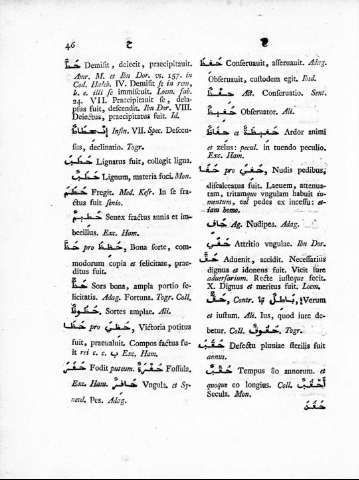 46
ح
حَطَّ Demisit, deiecit, praecipitauit.
Amr. M. et Ibn Dor. vs. 157. in
Cod. Haleb. IV. Demisit se in rem,
b. e. illi se immiscuit. Locm. sub.
24. VII. Praecipitauit se, dela-
psus fuit, descendit. Ibn Dor. VIII.
Deiectus, praecipitatus fuit. Id.
إنْحِطَاطٌ Infin. VII. Spec. Descen-
sus, declinatio. Togr.
حَطَبَ Lignatus fuit, collegit ligna.
حَطَبٌ Lignum, materia foci. Mon.
حَطَمَ Fregit. Med. Kesr. In se fra-
ctus fuit senio.
حَطِيمٌ Senex fractus annis et im-
becillus. Exc. Ham.
حَظَّ pro حَظِظَ, Bona forte, com-
modorum copia et felicitate, prae-
ditus fuit.
حَظٌّ Sors bona, ampla portio fe-
licitatis. Adag. Fortuna. Togr. Coll.
حُظُوظٌ Sortes amplae. Ali.
حَظَا pro حَظِيَ, Victoria potitus
fuit, praeualuit. Compos factus fu-
it rei c. c. ب Exc. Ham.
حَفَرَ Fodit puteum. حُفْرَةٌ Fossula.
Exc. Ham. حَافِرٌ Vngula. et Sy-
necd. Pes. Adag.
حَفِظَ Conseruauit, asseruauit. Adag.
Obseruauit, custodem egit. Ibid.
حِفْظٌ Ali. Conseruatio. Sent.
حَفِيظٌ Obseruator. Ali.
حِفَاظٌ et حَفِيظَةٌ Ardor animi
et zelus: pecul. in tuendo peculio.
Exc. Ham.
حَفَا pro حَفِيَ, Nudis pedibus,
discalceatus fuit. Laeuem, attenua-
tam, tritamque vngulam habuit iu-
mentum, vel pedes ex incessu: et-
iam homo.
حَافٍ Ag. Nudipes. Adag.
حَفًى Attritio vngulae. Ibn Dor.
حَقَّ Aduenit, accidit. Necessarius
dignus et idoneus fuit. Vicit iure
aduersarium. Recte iusteque fecit.
X. Dignus et meritus fuit. Locm.
حَقٌّ, Contr. بَاطِلٌ, Verum
et iustum. Ali. Ius, quod iure de-
betur. Coll. حُقُوقٌ Togr.
حَقِبَ Defectu pluuiae sterilis fuit
annus.
حُقْبٌ Tempus 80 annorum, et
quoque eo longius. Coll. أَحْقَابٌ
Secula. Mon.
حَقَدَ